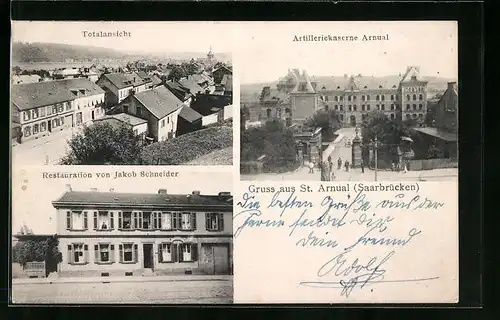 Totalansicht
Artilleriekaserne Arnual
Restauration von Jakob Schneider
Gruss aus St. Arnual (Saarbrücken)
Die besten Grüße aus der
Ferne sendet dir
dein Freund
Adolf